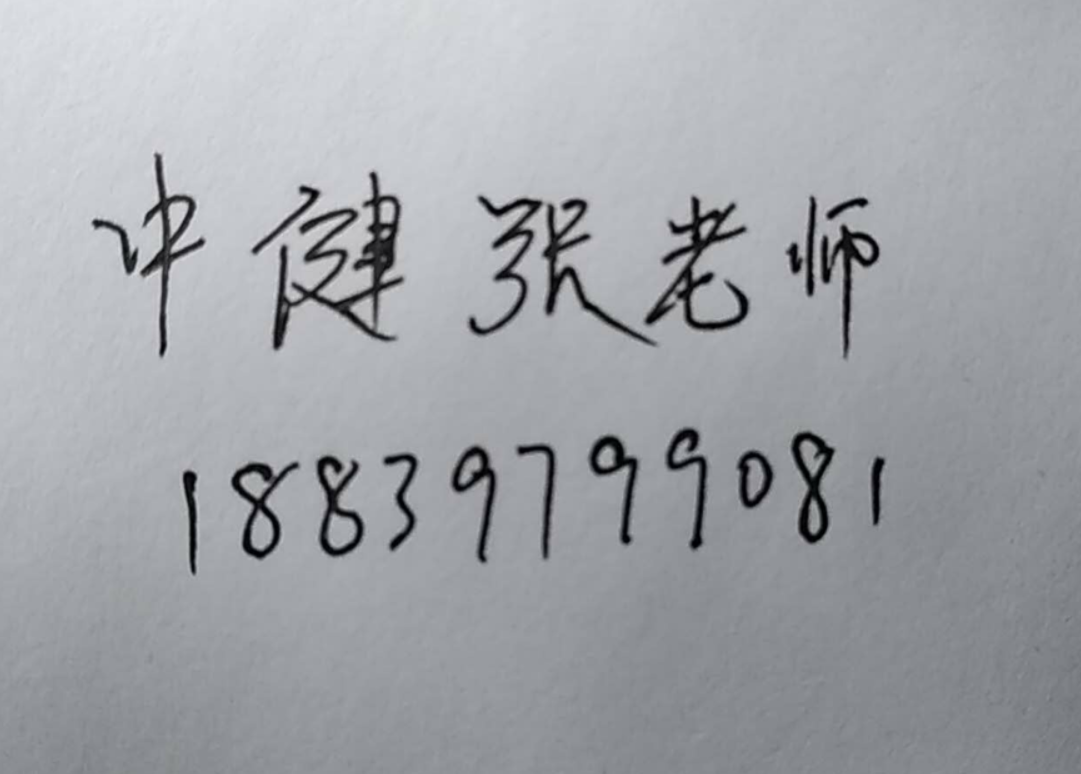 中健张老师
18839799081